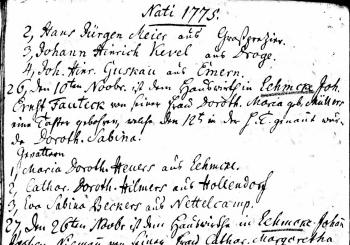 Nati 1775.
2, Hans Jürgen Meier aus Großgresier.
3, Johann Hinrich Kevel aus Droge.
4, Joh. Hinr. Guskau aus Emern.
26, den 10ten Novbr. ist dem Hauswirth in Eehmcke Joh.
Ernst Fauteck von seiner Frau Doroth. Maria geb. Müllers
eine Tochter gebohren, welche den 12t in der H. T. genant wor-
de Doroth. Sabina.
Gevattern
1, Maria Doroth. Heuers aus Eehmcke.
2, Cathar. Doroth. Hilmers aus Hollendorf
3, Eva Sabina Beckers aus Nettelcamp.
27, den 26ten Novbr. ist dem Hauswirthe in Eehmcke Johan
Niemann von seiner Frau Cathar. Margaretha